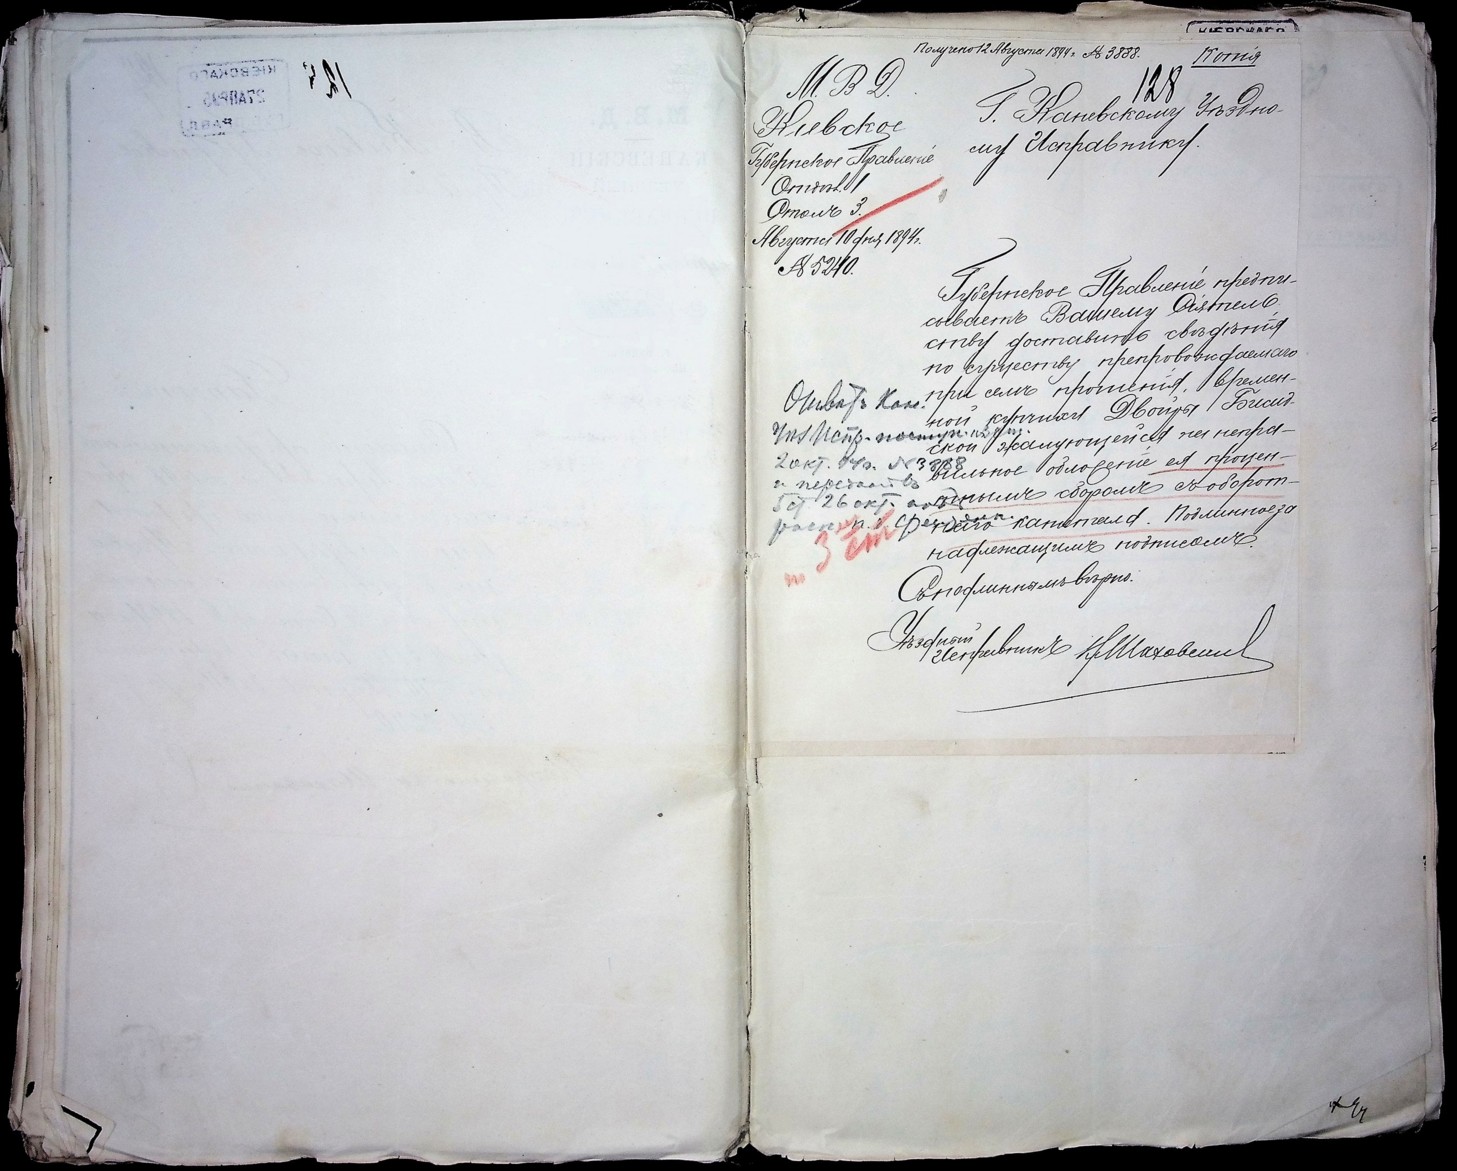 КІЕВСКАГО
Получено 12 Августа 1894 г. № 3888.
Копія
128
М. В. Д.
Кіевское
Губернское Правленіе
Отдѣл. 1
Столъ 3.
Августа 10 дня 1894 г.
№ 5240.
Г. Каневскому Уѣздно-
му Исправнику.
Губернское Правленіе предпи-
сываетъ Вашему Сіятель-
ству доставить свѣдѣнія
по существу препровождаемаго
при семъ прошенія, времен-
ной купчихи Двойры
ской жалующейся на непра-
вильное обложеніе ея процен-
тнымъ сборомъ съ оборот-
наго капитала. Подлинное за
надлежащимъ подписомъ.
Съ подлиннымъ вѣрно:
Уѣздный
Исправникъ Кн Шаховской
Отвѣтъ Кан.
Испр.
2 окт. 94 г. № 3888
и передастъ
5 ст. 26 окт.
3 ст